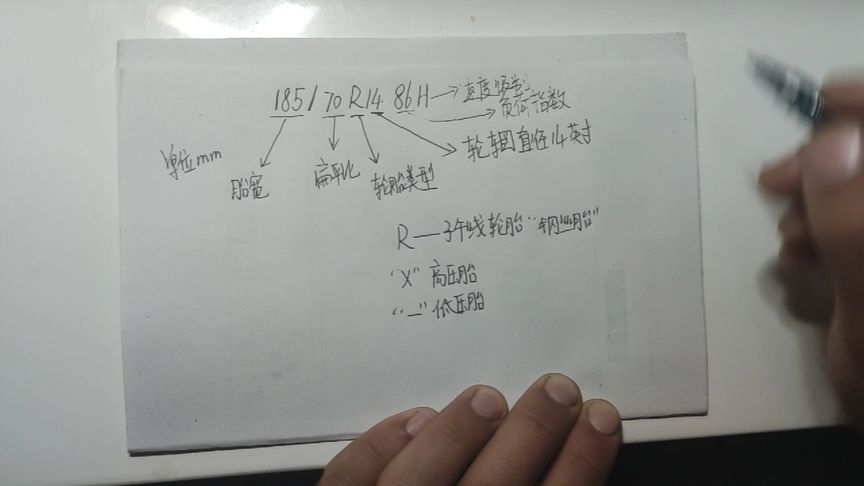 185/70R14 86H
速度级别
负荷指数
轮辋直径14英寸
单位mm
胎宽
扁平比
轮胎类型
R—子午线轮胎“钢丝胎”
“X”高压胎
“—”低压胎